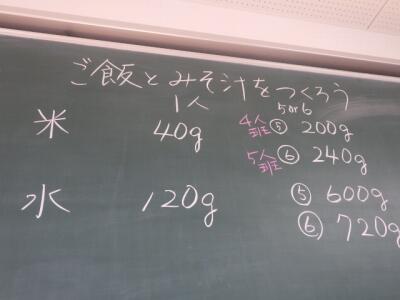 ご飯とみそ汁をつくろう
1人 5or6
米 40g 4人班 ⑤ 200g
5人班 ⑥ 240g
水 120g ⑤ 600g
⑥ 720g